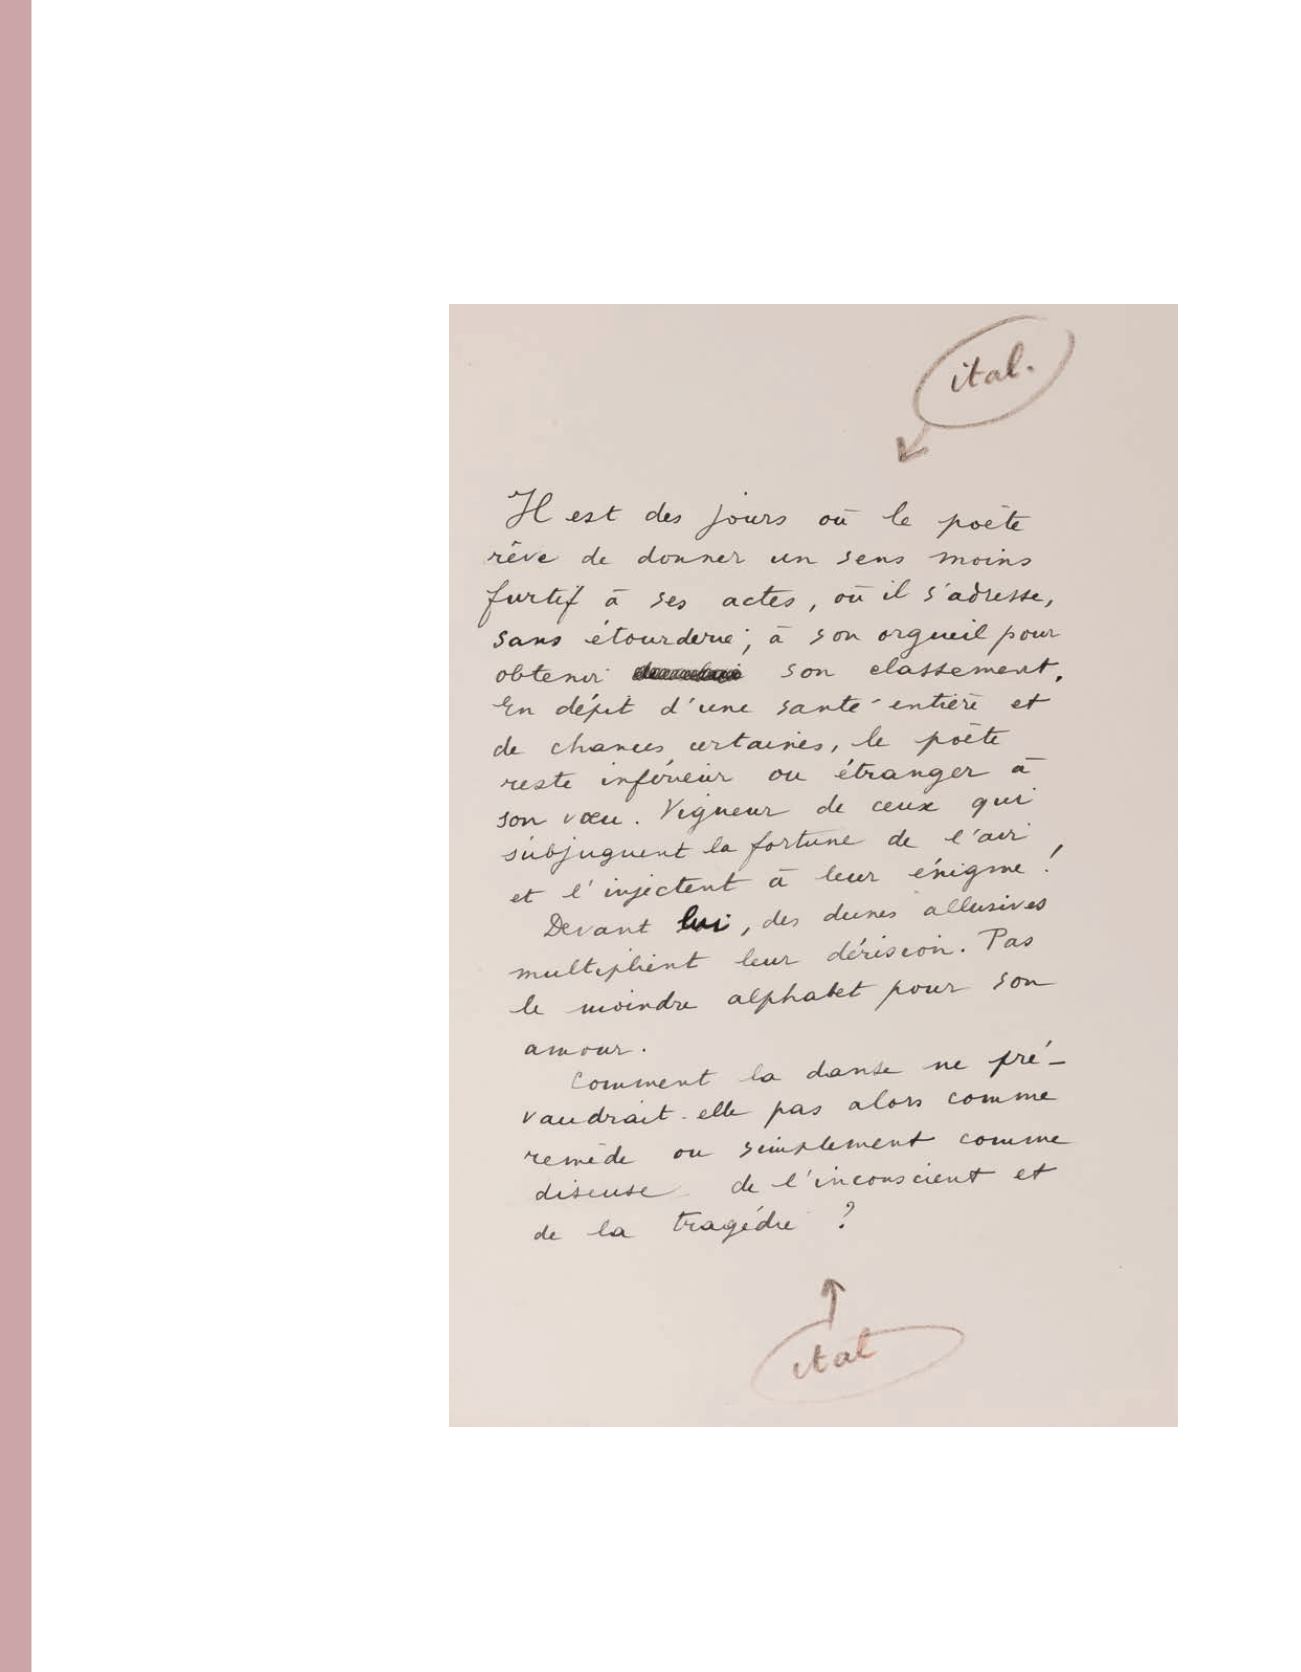 ital.
Il est des jours où le poète
rêve de donner un sens moins
furtif à ses actes, où il s'adresse,
sans étourderie, à son orgueil pour
obtenir son classement.
En dépit d'une santé entière et
de chances certaines, le poète
reste inférieur ou étranger à
son vœu. Vigueur de ceux qui
subjuguent la fortune de l'air
et l'injectent à leur énigme !
Devant lui, des dunes allusives
multiplient leur dérision. Pas
le moindre alphabet pour son
amour.
Comment la danse ne pré-
vaudrait-elle pas alors comme
remède ou simplement comme
diseuse de l'inconscient et
de la tragédie ?
ital